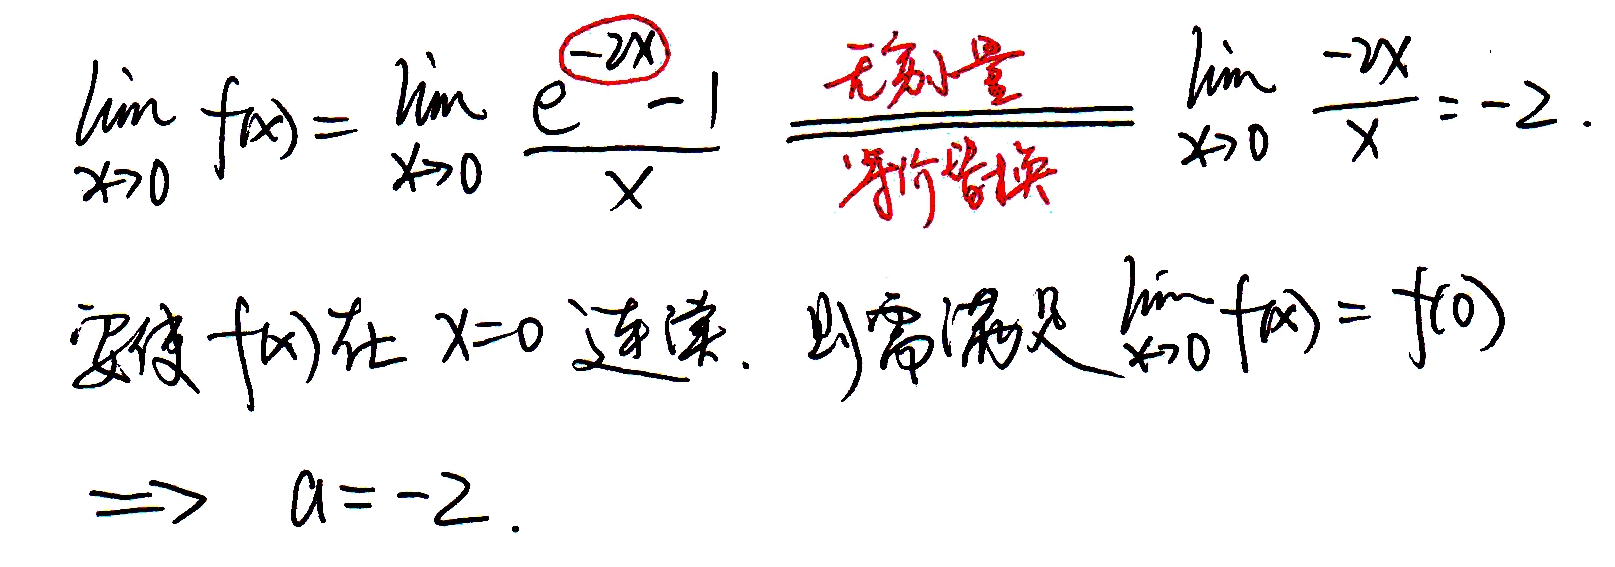 lim x→0 f(x) = lim x→0 (e^(-2x) - 1)/x 无穷小量 等价替换 = lim x→0 (-2x)/x = -2.
要使 f(x) 在 x=0 连续. 则需满足 lim x→0 f(x) = f(0)
⟹ a = -2.